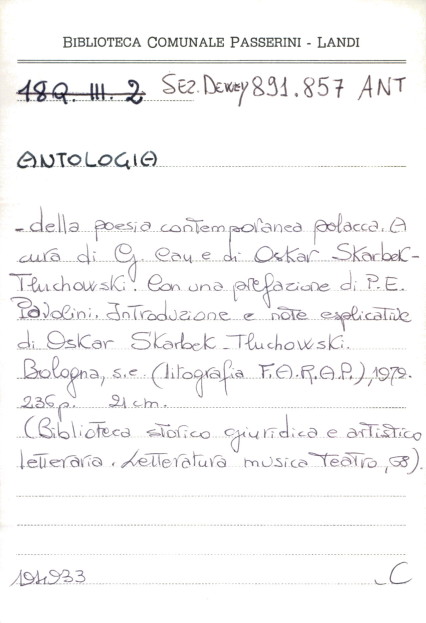 BIBLIOTECA COMUNALE PASSERINI - LANDI
18Q. III. 2 SEZ. Dewey 891.857 ANT
ANTOLOGIA
- della poesia contemporanea polacca. A
cura di G. Cau e di Oskar Skarbek-
Tłuchowski. Con una prefazione di P.E.
Pavolini. Introduzione e note esplicative
di Oskar Skarbek-Tłuchowski.
Bologna, s.e. (litografia F.A.R.A.P.), 1979.
236 p. 21 cm.
(Biblioteca storico giuridica e artistico
letteraria. Letteratura musica Teatro, 58).
194933 C